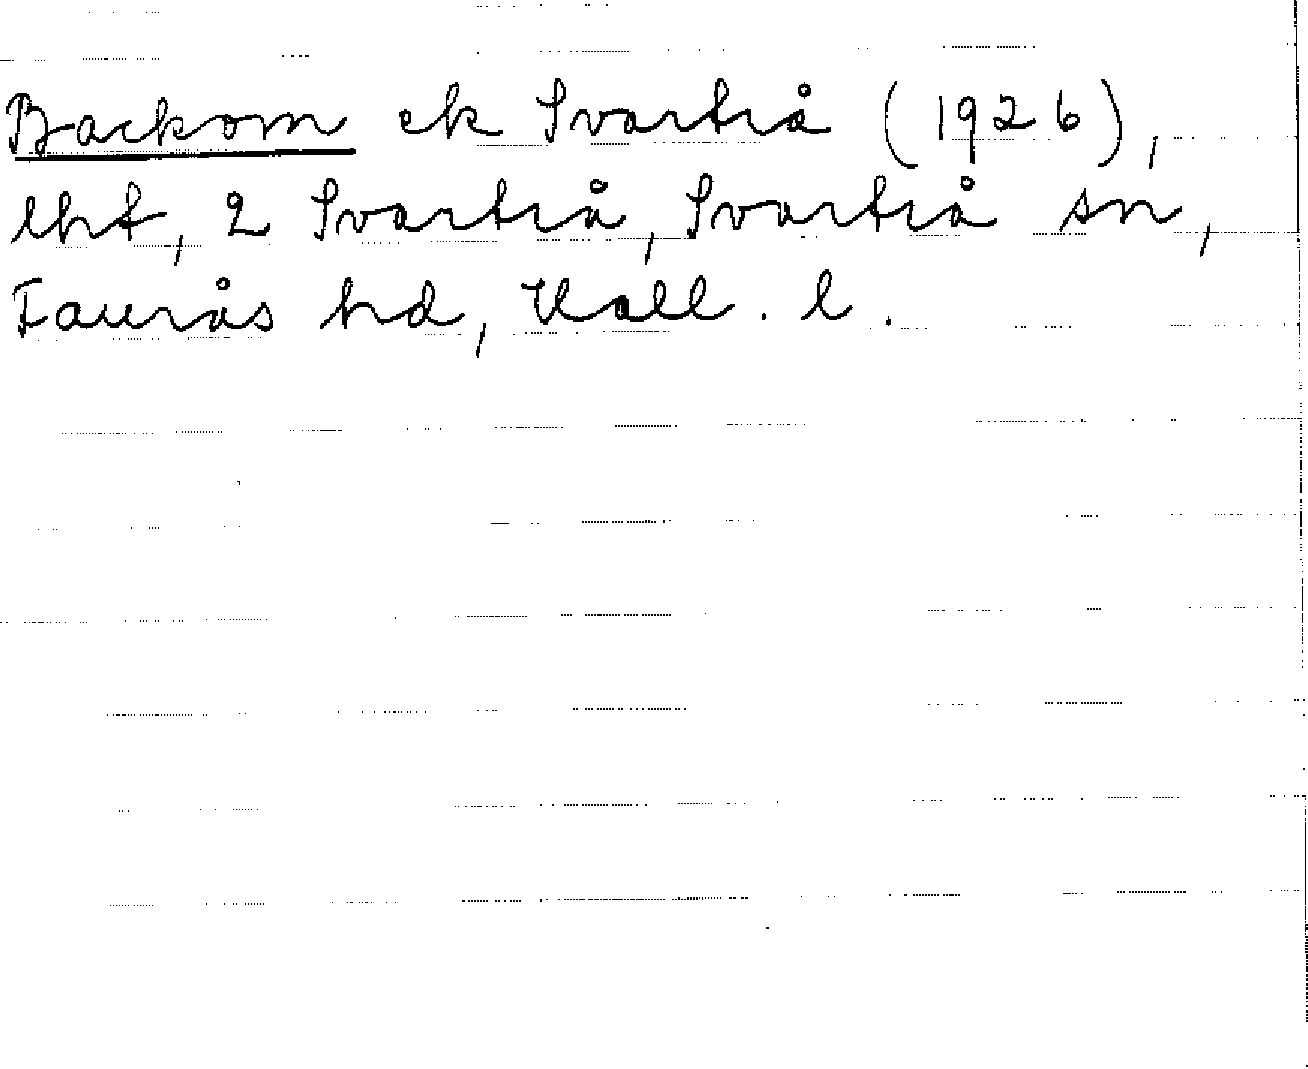 Backom ek Svartrå (1926),
lht, 2 Svartrå, Svartrå sn,
Faurås hd, Hall. l.